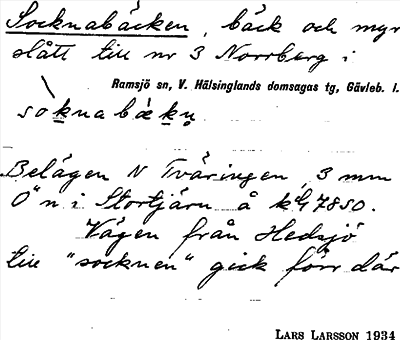 Socknabäcken, bäck och myr
slått till nr 3 Norrberg i
Ramsjö sn, V. Hälsinglands domsagas tg, Gävleb. l.
soknabäkn̥
Belägen N Tväringen, 3 mm
O "n i Stortjärn å kbl 7850.
Vägen från Hedsjö
till "socknen" gick förr där
LARS LARSSON 1934